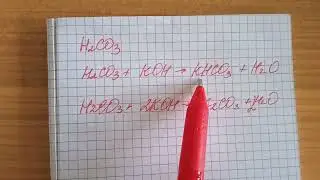 H₂CO₃
H₂CO₃ + KOH → KHCO₃ + H₂O
H₂CO₃ + 2KOH → ₂CO₃ + 2H₂O